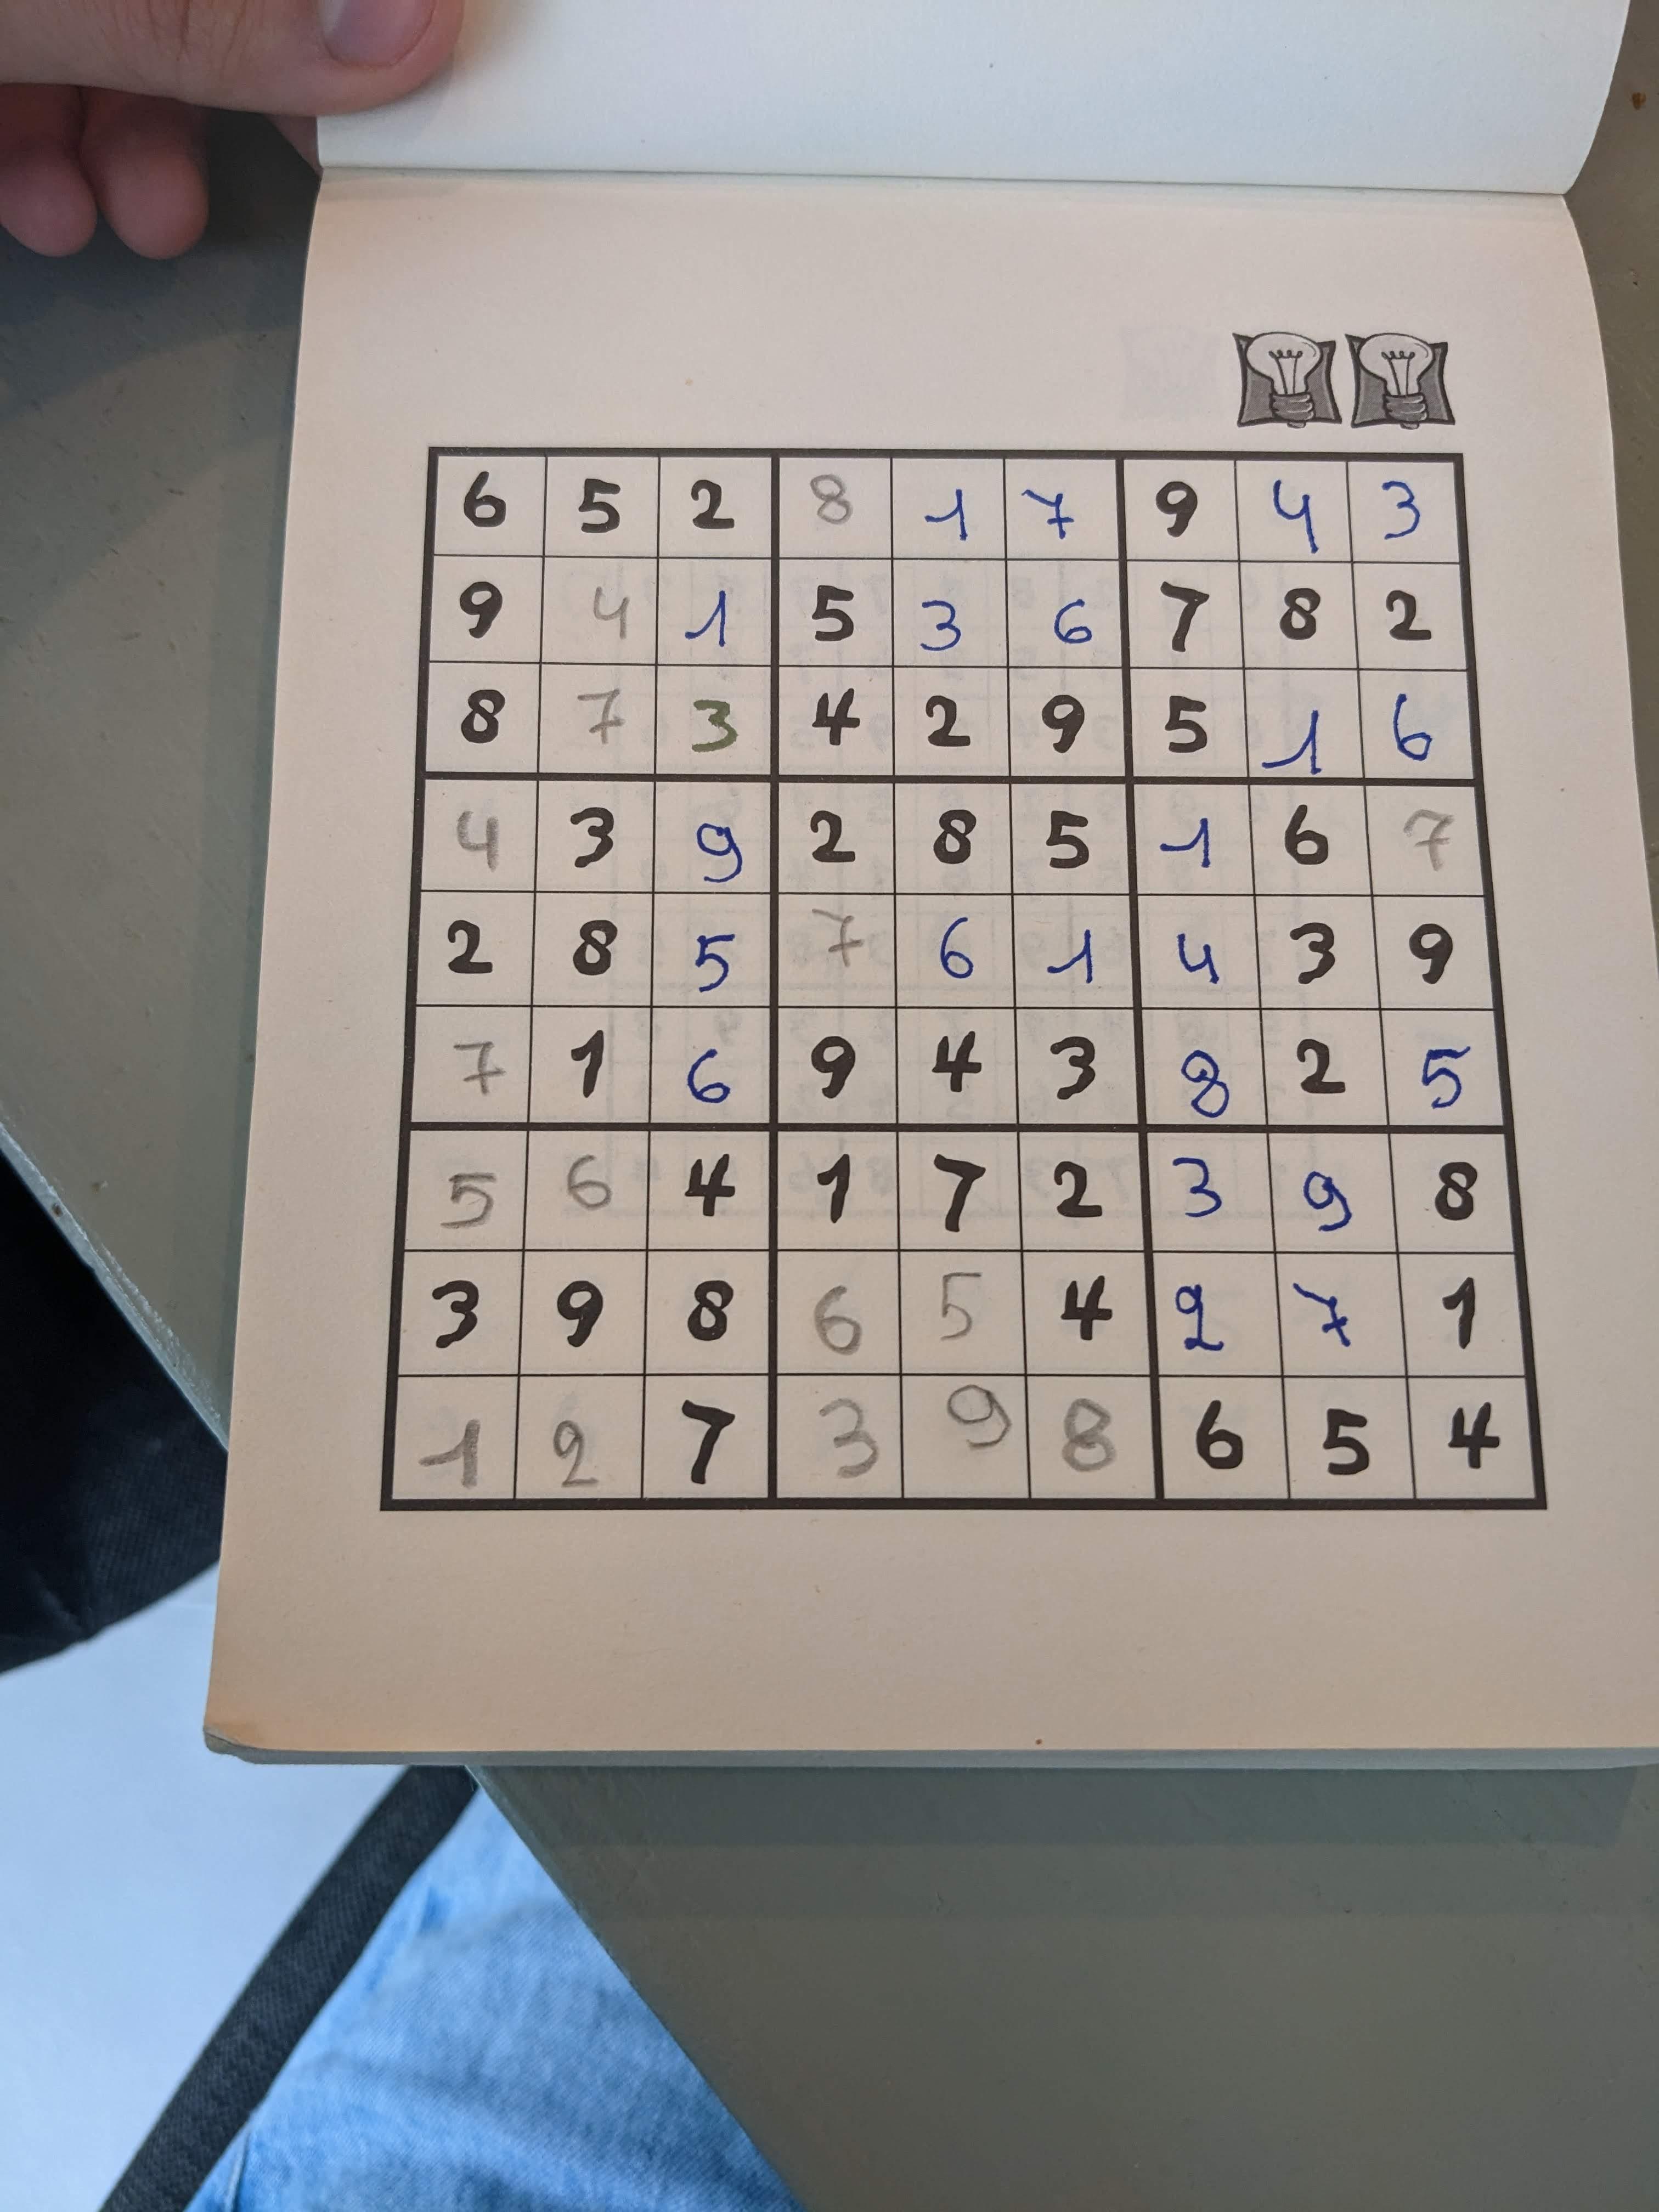 6 5 2 8 1 7 9 4 3
9 4 1 5 3 6 7 8 2
8 7 3 4 2 9 5 1 6
4 3 9 2 8 5 1 6 7
2 8 5 7 6 1 4 3 9
7 1 6 9 4 3 8 2 5
5 6 4 1 7 2 3 9 8
3 9 8 6 5 4 2 7 1
1 2 7 3 9 8 6 5 4